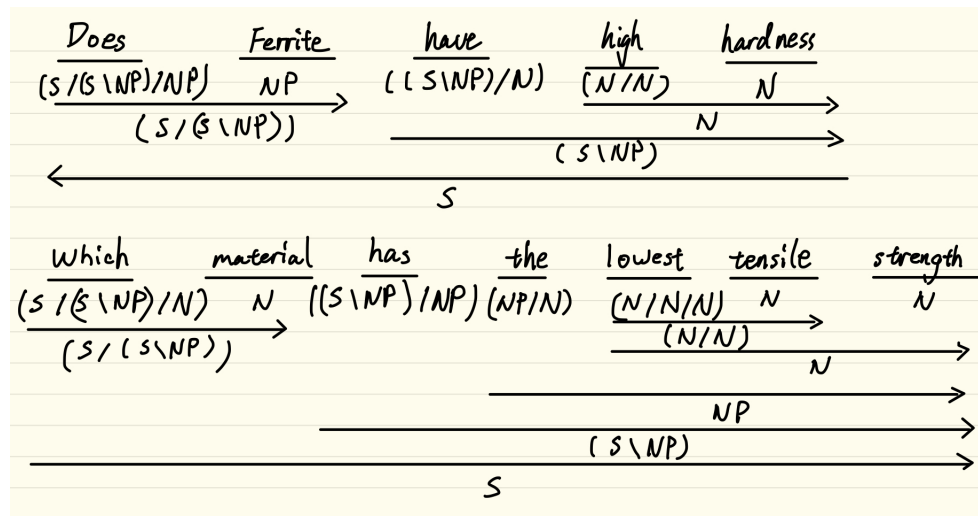 Does Ferrite have high hardness
(S/(S\NP)/NP) NP ((S\NP)/N) (N/N) N
(S/(S\NP)) N
(S\NP)
S
Which material has the lowest tensile strength
(S/(S\NP)/N) N ((S\NP)/NP) (NP/N) (N/N/N) N N
(S/(S\NP)) (N/N)
N
NP
(S\NP)
S